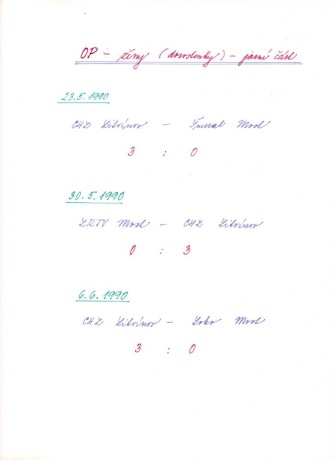 OP - ženy (dorostenky) - jarní část
23.5.1990
CHZ Litvínov - Spartak Most
3 : 0
30.5.1990
ZRTV Most - CHZ Litvínov
0 : 3
6.6.1990
CHZ Litvínov - Loko Most
3 : 0